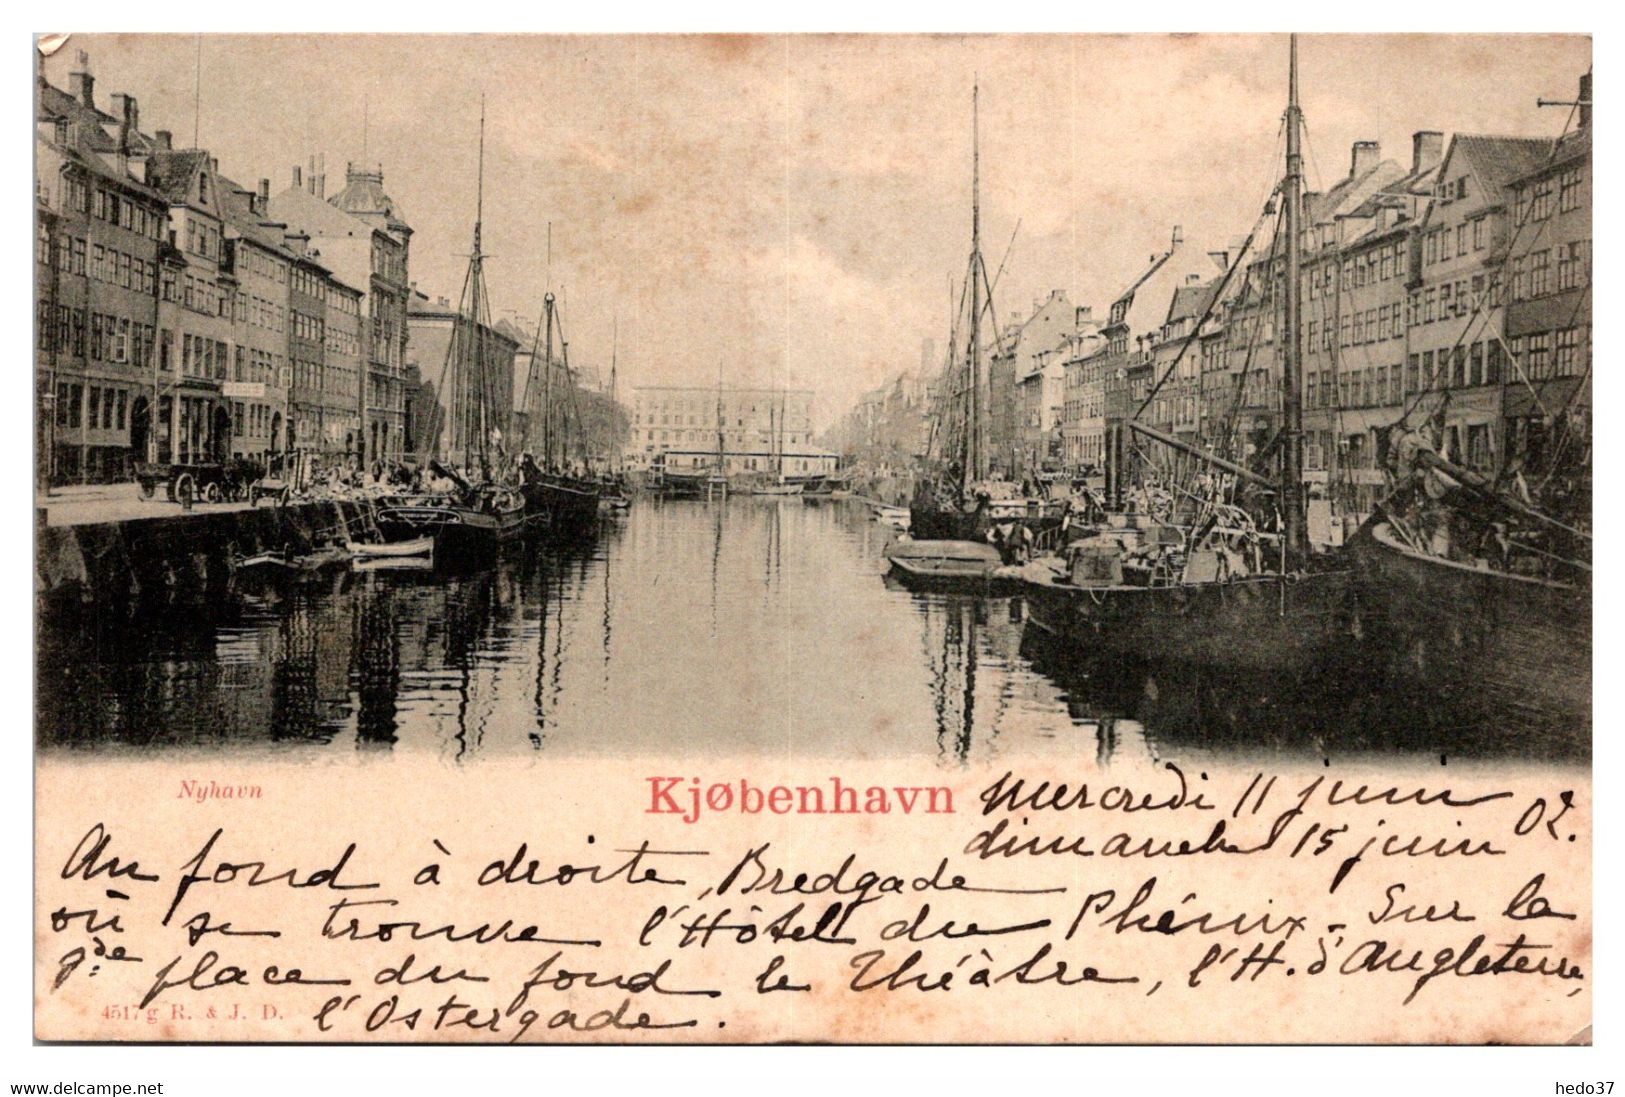 Nyhavn
Kjøbenhavn
Mercredi 11 juin
dimanche 15 juin 02.
Au fond à droite, Bredgade
où se trouve l'Hôtel du Phénix. Sur la
gde place du fond le Théâtre, l'H. d'Angleterre,
l'Ostergade.
4517 g R. & J. D.
www.delcampe.net
hedo37